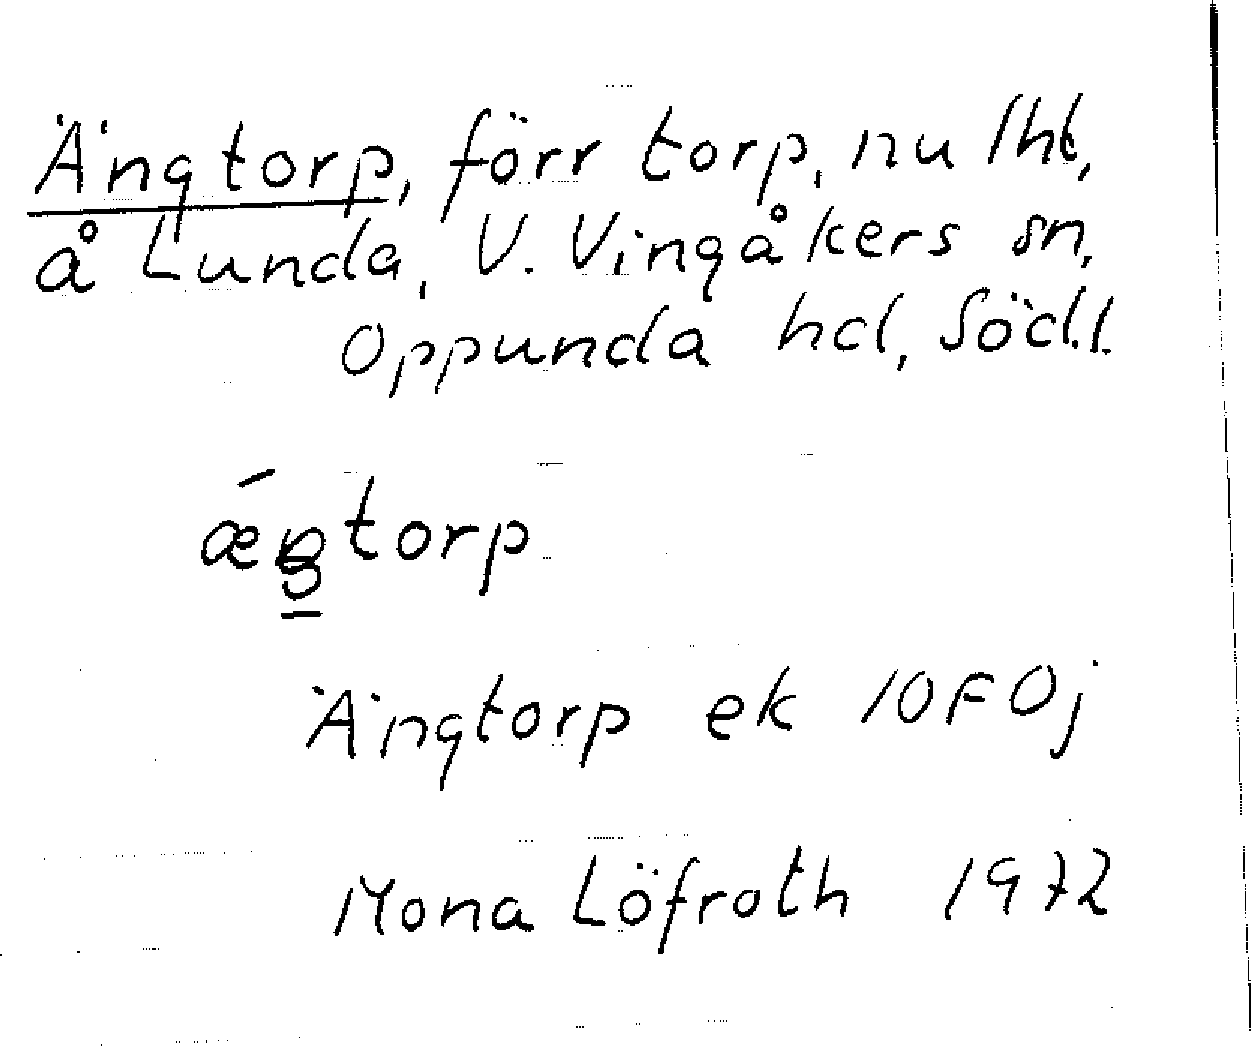 Ängtorp, förr torp, nu lht,
å Lunda, V. Vingåkers sn,
Oppunda hd, Södl.
torp
Ängtorp ek 10F0j
Mona Löfroth 1972